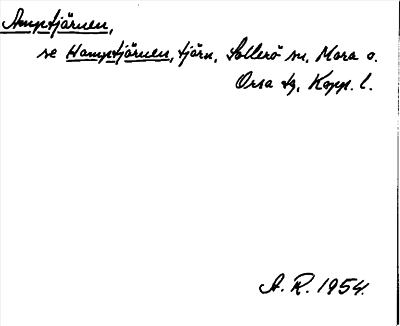 Amptjärnen,
se Hamptjärnen, tjärn, Sollerö sn, Mora o.
Orsa tg, Kopp. l.
A. R. 1954.